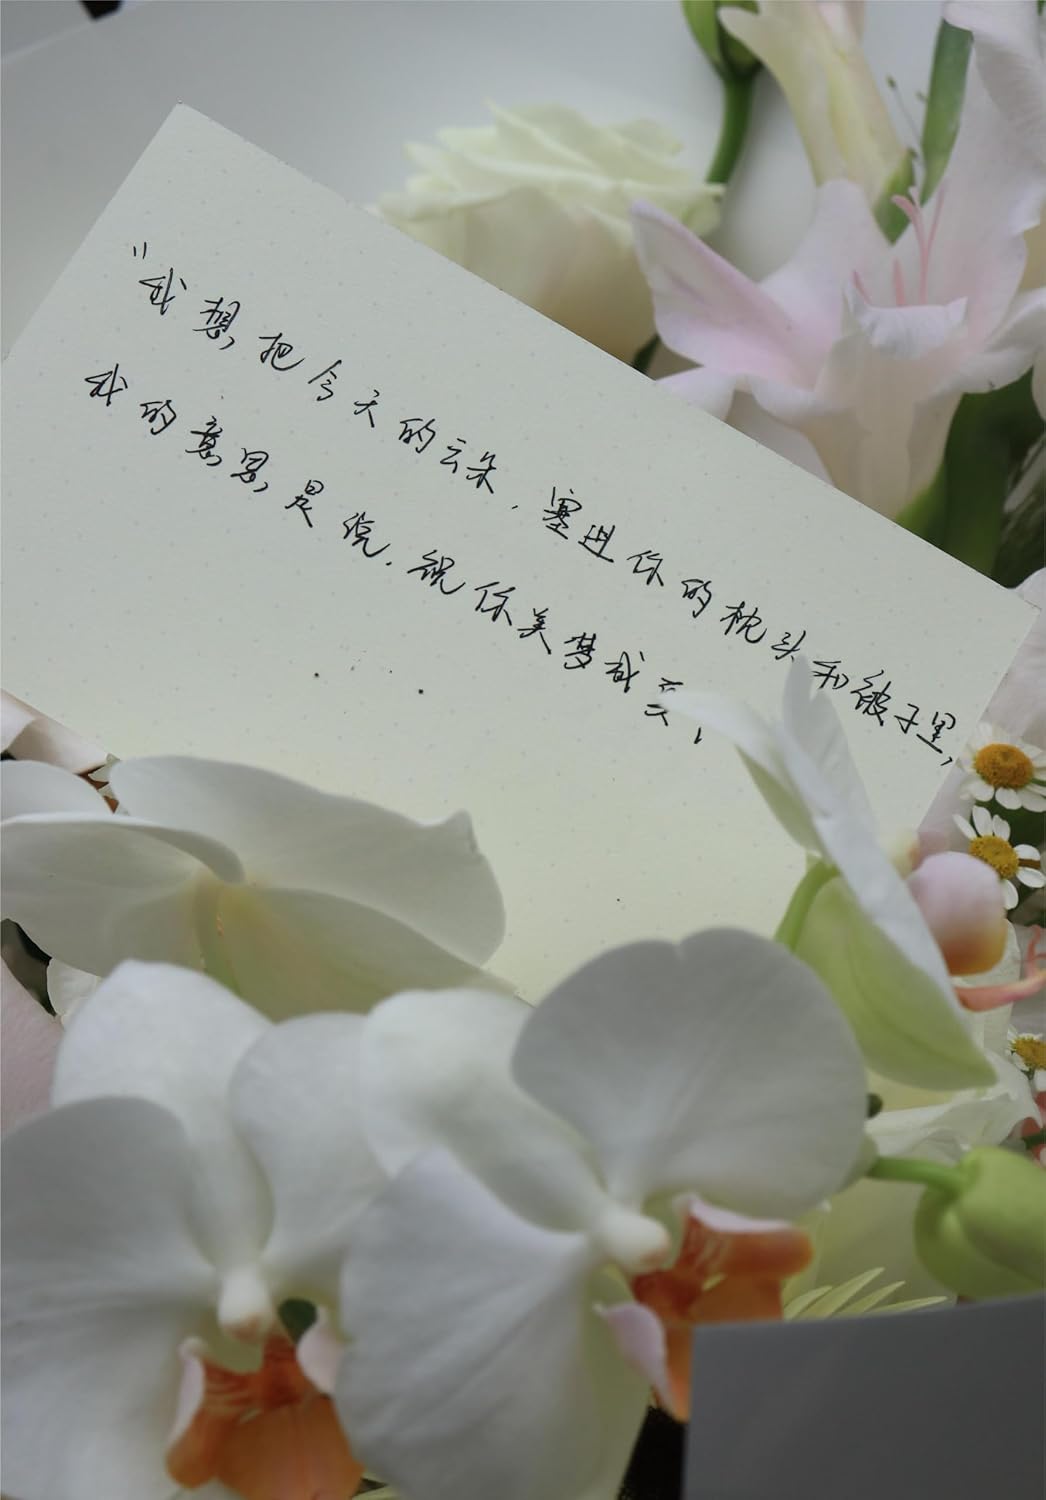 "我想把今天的云朵，塞进你的枕头和被子里，
我的意思是说，祝你美梦成真，